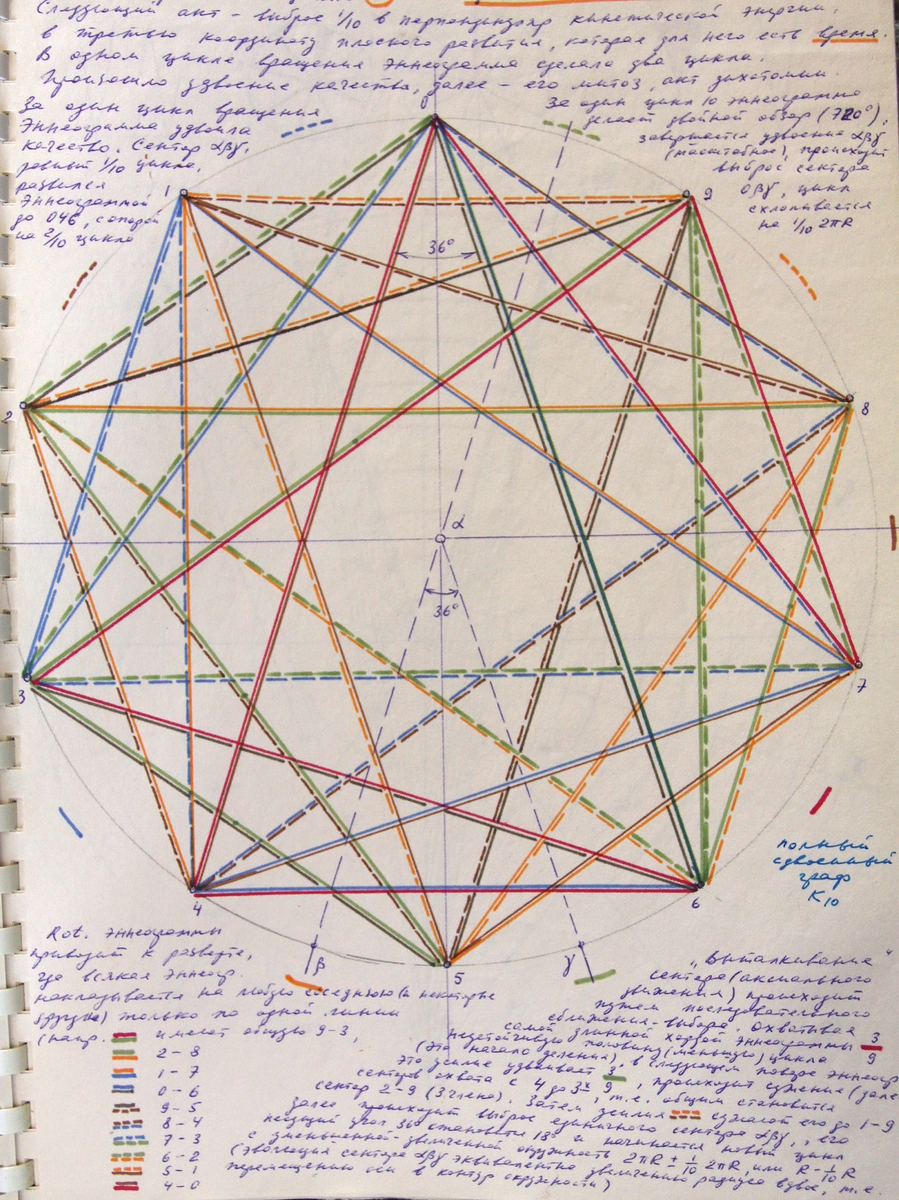 Следующий акт – выброс 1/10 в перпендикуляр кинетической энергии,
в третью координату плоского развития, которая для него есть время.
В одном цикле вращения эннеаграмма сделала два цикла.
Произошло удвоение качества, далее – его митоз, акт дихотомии.
За один цикл вращения
Эннеаграмма удвоила
качество. Сектор αβγ,
равный 1/10 цикла,
развился
Эннеаграммой
до 046,
на 2/10 цикла
За один цикл 10 эннеаграмм
делает двойной обзор (720°),
завершается удвоение αβγ
(масштабное), происходит
выброс сектора
αβγ, цикл
схлопывается
на 1/10 2πR
0
1
9
36°
2
8
α
36°
3
7
4
6
5
β
γ
полный
сдвоенный
граф
K10
Rot. эннеаграммы
приводит к развёртке,
где всякая эннеагр.
накладывается на любую соседнюю (и некоторые
другие) только по одной линии
(напр. имеют общую 9-3,
2-8
1-7
0-6
9-5
8-4
7-3
6-2
5-1
4-0
„Выталкивание"
сектора (аксиального
движения) происходит
путем последовательного
сближения-выбора. Охватывая
самой длинной хордой эннеаграммы 3
(это начало деления) (меньшую) цикла 9
это усилие удваивает 3, в следующем повороте эннеагр
сектора охвата с 4 до 3х 9, происходит сужение (далее
сектор 2-9 (3 члена). Затем, т.е. общим становится
далее происходит выброс усилия сужает его до 1-9
несущий угол 36° становится 18° и начинается новый цикл
с уменьшенной-увеличенной окружность 2πR ± 1/10 2πR, или R - 1/10 R
(эволюция сектора αβγ эквивалентно увеличению радиуса вдвое, т.е.
перемещению оси в контур окружности)